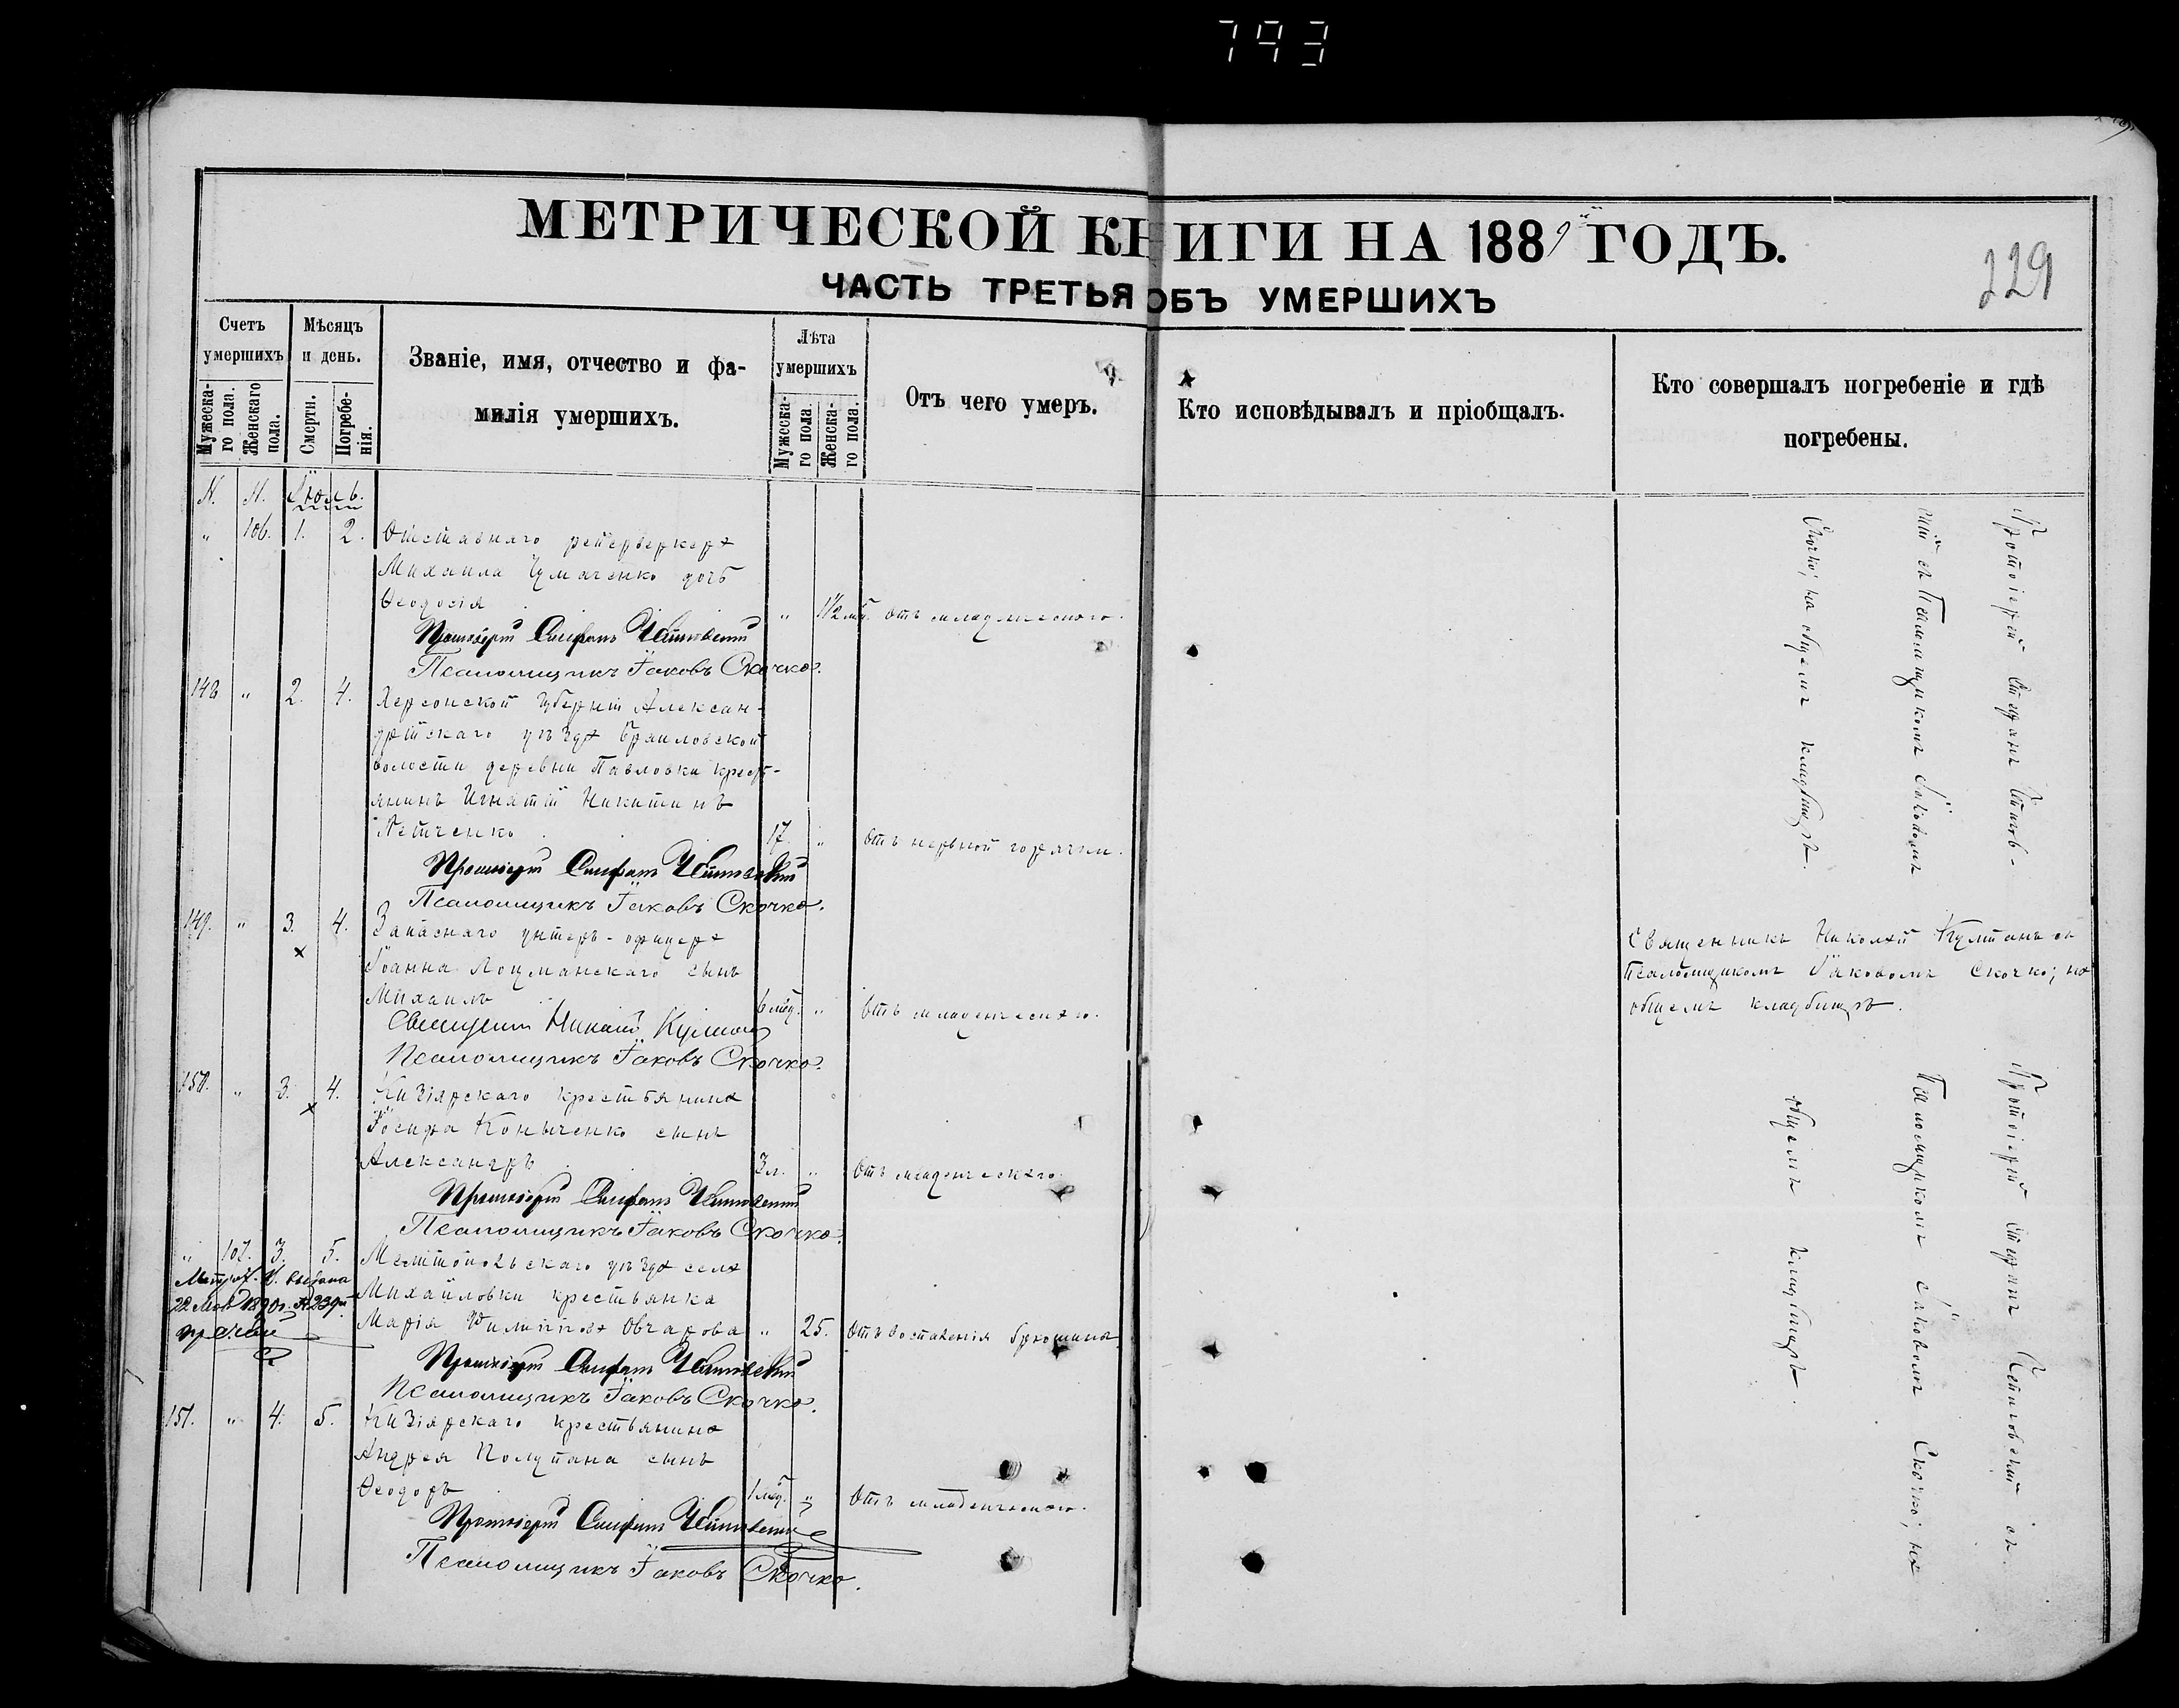 793
МЕТРИЧЕСКОЙ КНИГИ НА 1889 ГОДЪ.
229
ЧАСТЬ ТРЕТЬЯ ОБЪ УМЕРШИХЪ
Счетъ умершихъ
Мужеска-го пола.
Женскаго пола.
Мѣсяцъ и день.
Смерти.
Погребе-нія.
Званіе, имя, отчество и фа-
милія умершихъ.
Лѣта умершихъ
Мужеска-го пола.
Женска-го пола.
Отъ чего умеръ.
Кто исповѣдывалъ и пріобщалъ.
Кто совершалъ погребеніе и гдѣ
погребены.
N. N. Іюль.
" 106. 1. 2. Отставнаго
Михаила Чумаченко дочь
Ѳеодосія " 1 1/2 мѣ. Отъ младенческаго.
Протоіерей Стефанъ
Псаломщикъ Іаковъ Скочко.
148 " 2. 4. Херсонской губерніи Алексан-
дрійскаго уѣзда Браиловской
волости деревни Павловки кресть-
янинъ Игнатій Никитинъ
17. " Отъ нервной горячки.
Протоіерей Стефанъ
Псаломщикъ Іаковъ Скочко.
149. " 3. 4. Запаснаго унтеръ-офицера
Іоанна Лоцманскаго сынъ
Михаилъ 6 мѣс. " Отъ младенческаго.
Священникъ Николай
Псаломщикъ Іаковъ Скочко.
150. " 3. 4. Кизіярскаго крестьянина
Іосифа Коныченко сынъ
Александръ 3 л. " Отъ младенческаго.
Протоіерей Стефанъ
Псаломщикъ Іаковъ Скочко.
" 107. 3. 5. Мелитопольскаго уѣзда села
Михайловки крестьянка
Марія Филиппова Овчарова " 25. Отъ воспаленія брюшины
выдана
1890 г.
Протоіерей Стефанъ
Псаломщикъ Іаковъ Скочко.
151. " 4. 5. Кизіярскаго крестьянина
Андрея Полупана сынъ
Ѳеодоръ 1 мѣс. " Отъ младенческаго.
Протоіерей Стефанъ
Псаломщикъ Іаковъ Скочко.
Протоіерей Стефанъ
съ Псаломщикомъ Іаковомъ
Скочко; на общемъ кладбищѣ.
Священникъ Николай съ
Псаломщикомъ Іаковомъ Скочко; на
общемъ кладбищѣ.
Протоіерей Стефанъ съ
Псаломщикомъ Іаковомъ Скочко; на
общемъ кладбищѣ.